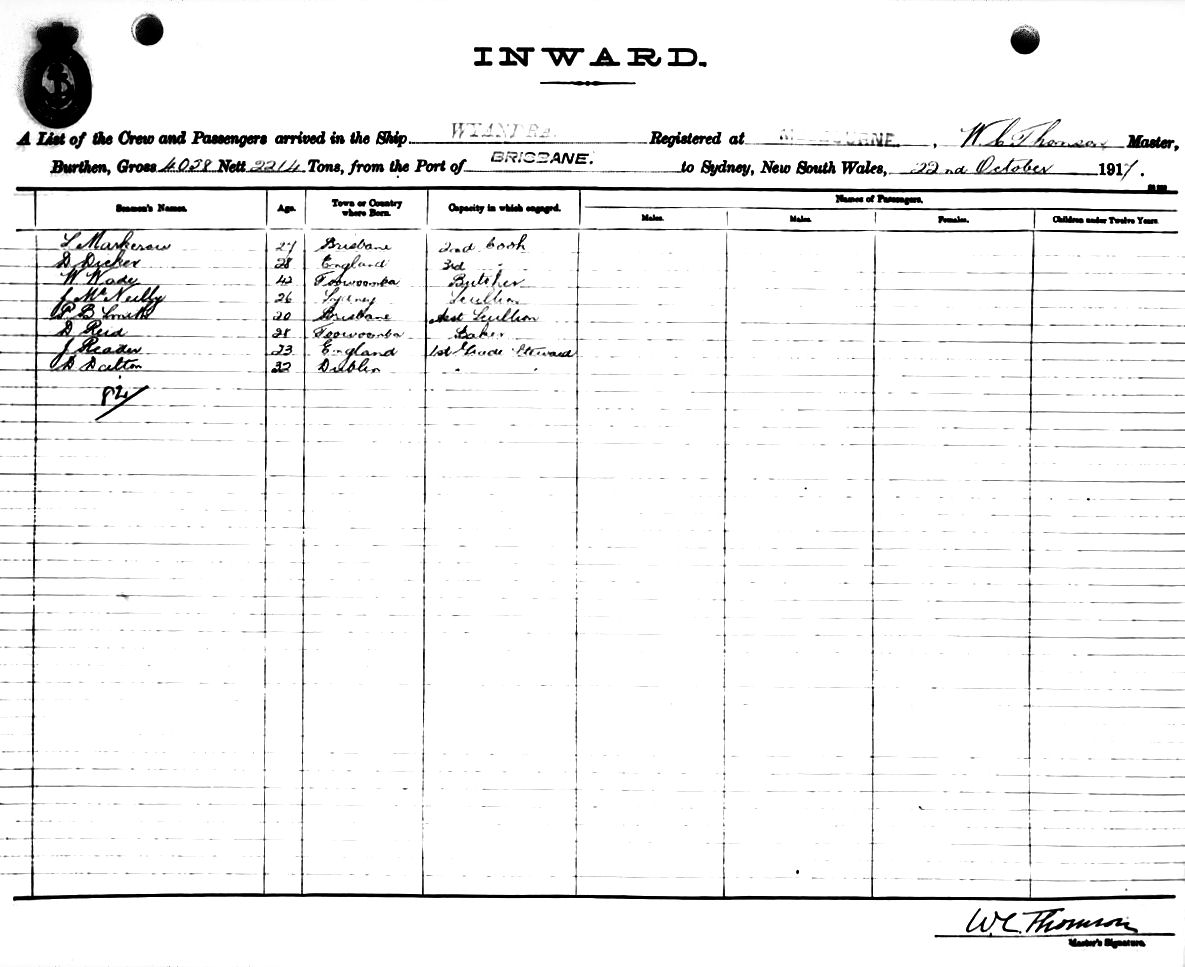 INWARD.
A List of the Crew and Passengers arrived in the Ship WYANDRA. Registered at MELBOURNE. , W. C. Thomson Master,
Burthen, Gross 4058 Nett 2214 Tons, from the Port of BRISBANE. to Sydney, New South Wales, 22nd October 1917.
Seamen's Names. Age. Town or Country where Born. Capacity in which engaged. Names of Passengers.
Males. Males. Females. Children under Twelve Years.
27 Brisbane 2nd Cook
D Dicker 28 England 3rd "
W Wade 42 Toowoomba Butcher
J McNeilly 26 Sydney Scullion
P B Smith 20 Brisbane Asst Scullion
D Reid 28 Toowoomba Baker
J Reader 23 England 1st Grade Steward
D Dalton 32 Dublin " "
82/
W.C. Thomson
Master's Signature.